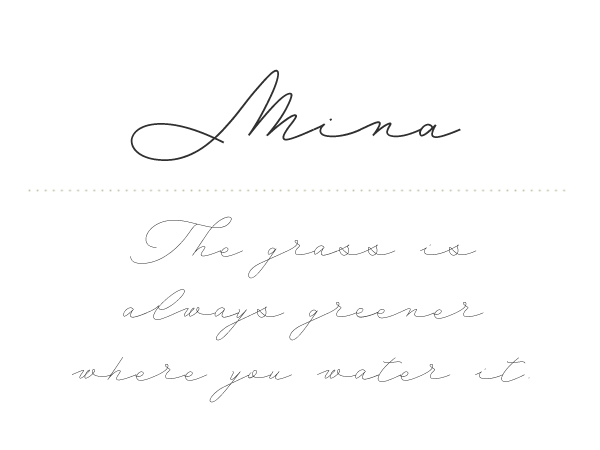 Mina
The grass is
always greener
where you water it.